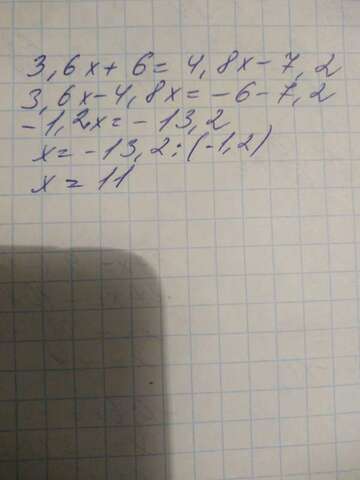 3,6x+6=4,8x-7,2
3,6x-4,8x=-6-7,2
-1,2x=-13,2
x=-13,2:(-1,2)
x=11